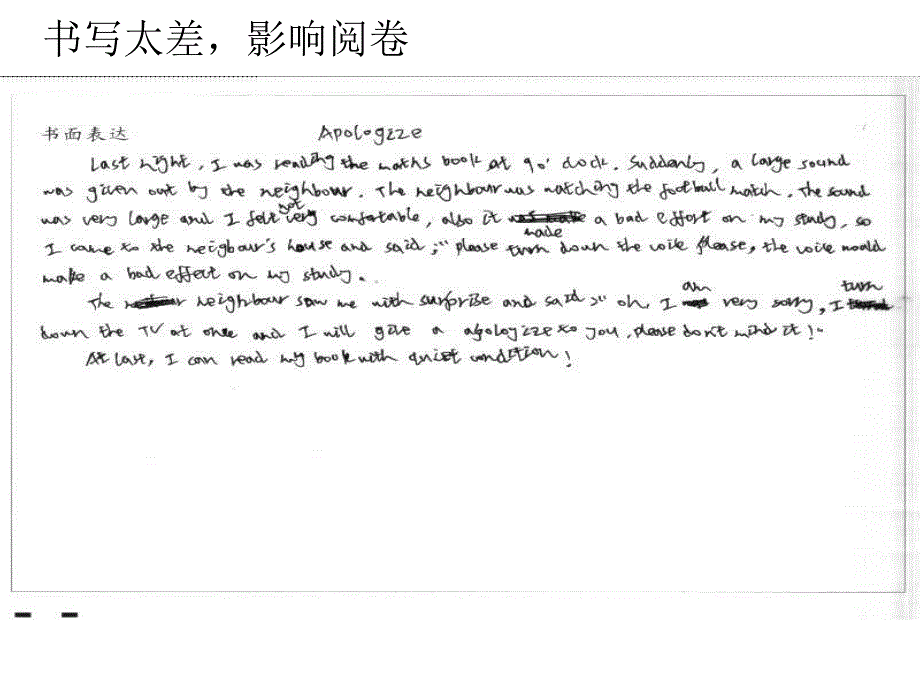 书写太差，影响阅卷
书面表达 Apologize
Last night, I was reading the maths book at 9o' clock. Suddenly, a large sound
was given out by the neighbour. The neighbour was watching the football match. The sound
was very large and I felt not very comfortable, also it made a bad effort on my study, so
I came to the neigbour's house and said; "please turn down the voice please, the voice would
make a bad effect on my study.
The neighbour saw me with surprise and said" oh, I am very sorry, I turn
down the TV at once and I will give a apologize to you, please don't mind it!"
At last, I can read my book with quiet condition!